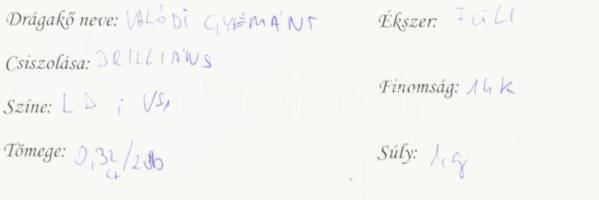 Drágakő neve: VALÓDI GYÉMÁNT
Csiszolása: BRILLIÁNS
Színe: LB ; VS1
Tömege: 0,32/2db
ct
Ékszer: FÜLI
Finomság: 14k
Súly: 1,g